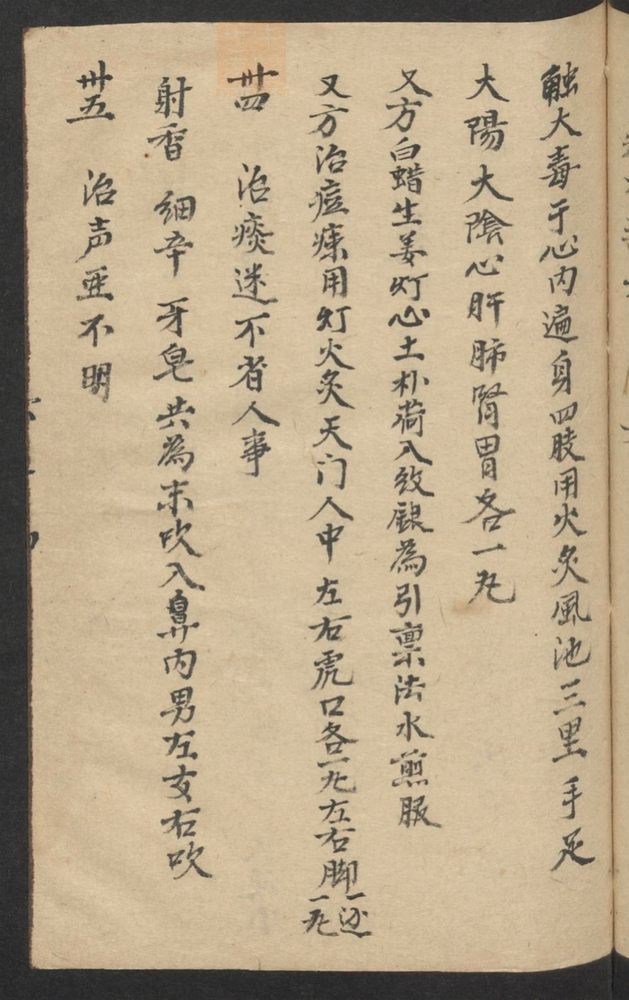 触大毒于心内遍身四肢用火炙風池三里手足
大陽大陰心肝肺腎胃各一丸
又方白蜡生姜灯心土朴荷入紋銀為引稟法水煎服
又方治痘痳用灯火炙天门人中左右虎口各一丸左右脚一丸
卅四 治痰迷不省人事
射香 細辛 牙皂 共為末吹入鼻内男左女右吹
卅五 治声亚不明